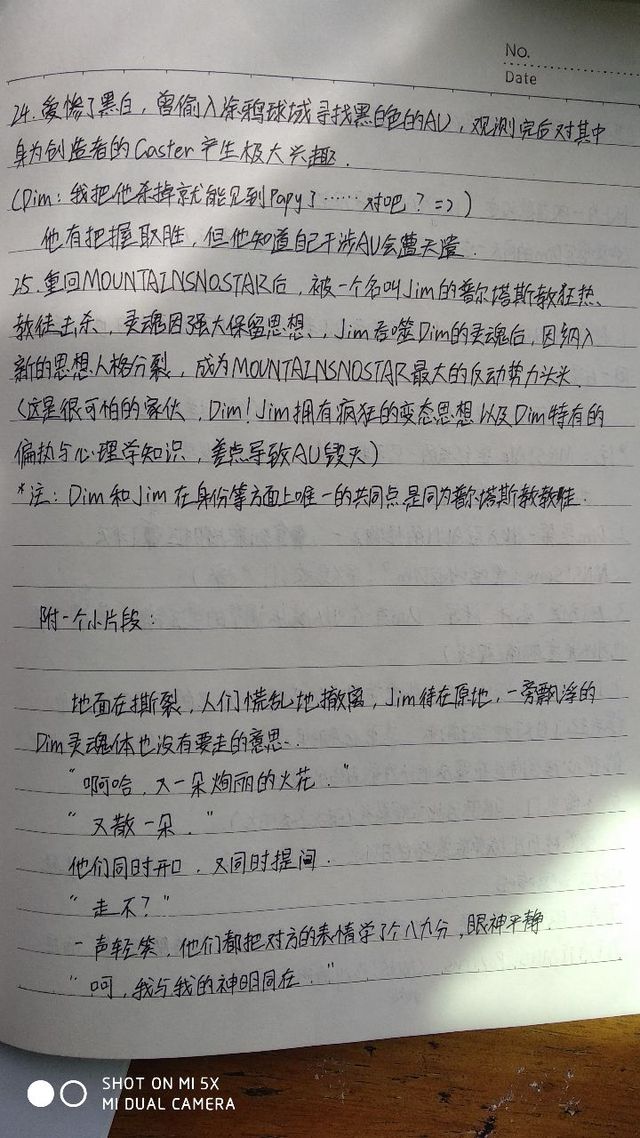 No.
Date
24.爱惨了黑白，曾偷入涂鸦球域寻找黑白色的AU，观测完后对其中
身为创造者的Caster产生极大兴趣.
(Dim：我把他杀掉就能见到Papy了……对吧？=>)
他有把握取胜，但他知道自己干涉AU会遭天谴.
25.重回MOUNTAINSNOSTAR后，被一个名叫Jim的普尔塔斯教狂热、
教徒击杀，灵魂因强大保留思想、，Jim吞噬Dim的灵魂后，因纳入
新的思想人格分裂，成为MOUNTAINSNOSTAR最大的反动势力头头.
(这是很可怕的家伙，Dim！Jim拥有疯狂的变态思想以及Dim特有的
偏执与心理学知识，差点导致AU毁灭)
*注：Dim和Jim在身份等方面上唯一的共同点是同为普尔塔斯教教徒.
附一个小片段：
地面在撕裂，人们慌乱地撤离，Jim待在原地，一旁飘浮的
Dim灵魂体也没有要走的意思..
“啊哈，又一朵绚丽的火花．”
“又散一朵．”
他们同时开口，又同时提问.
“走不？”
一声轻笑，他们都把对方的表情学了个八九分，眼神平静.
“呵，我与我的神明同在．”
SHOT ON MI 5X
MI DUAL CAMERA